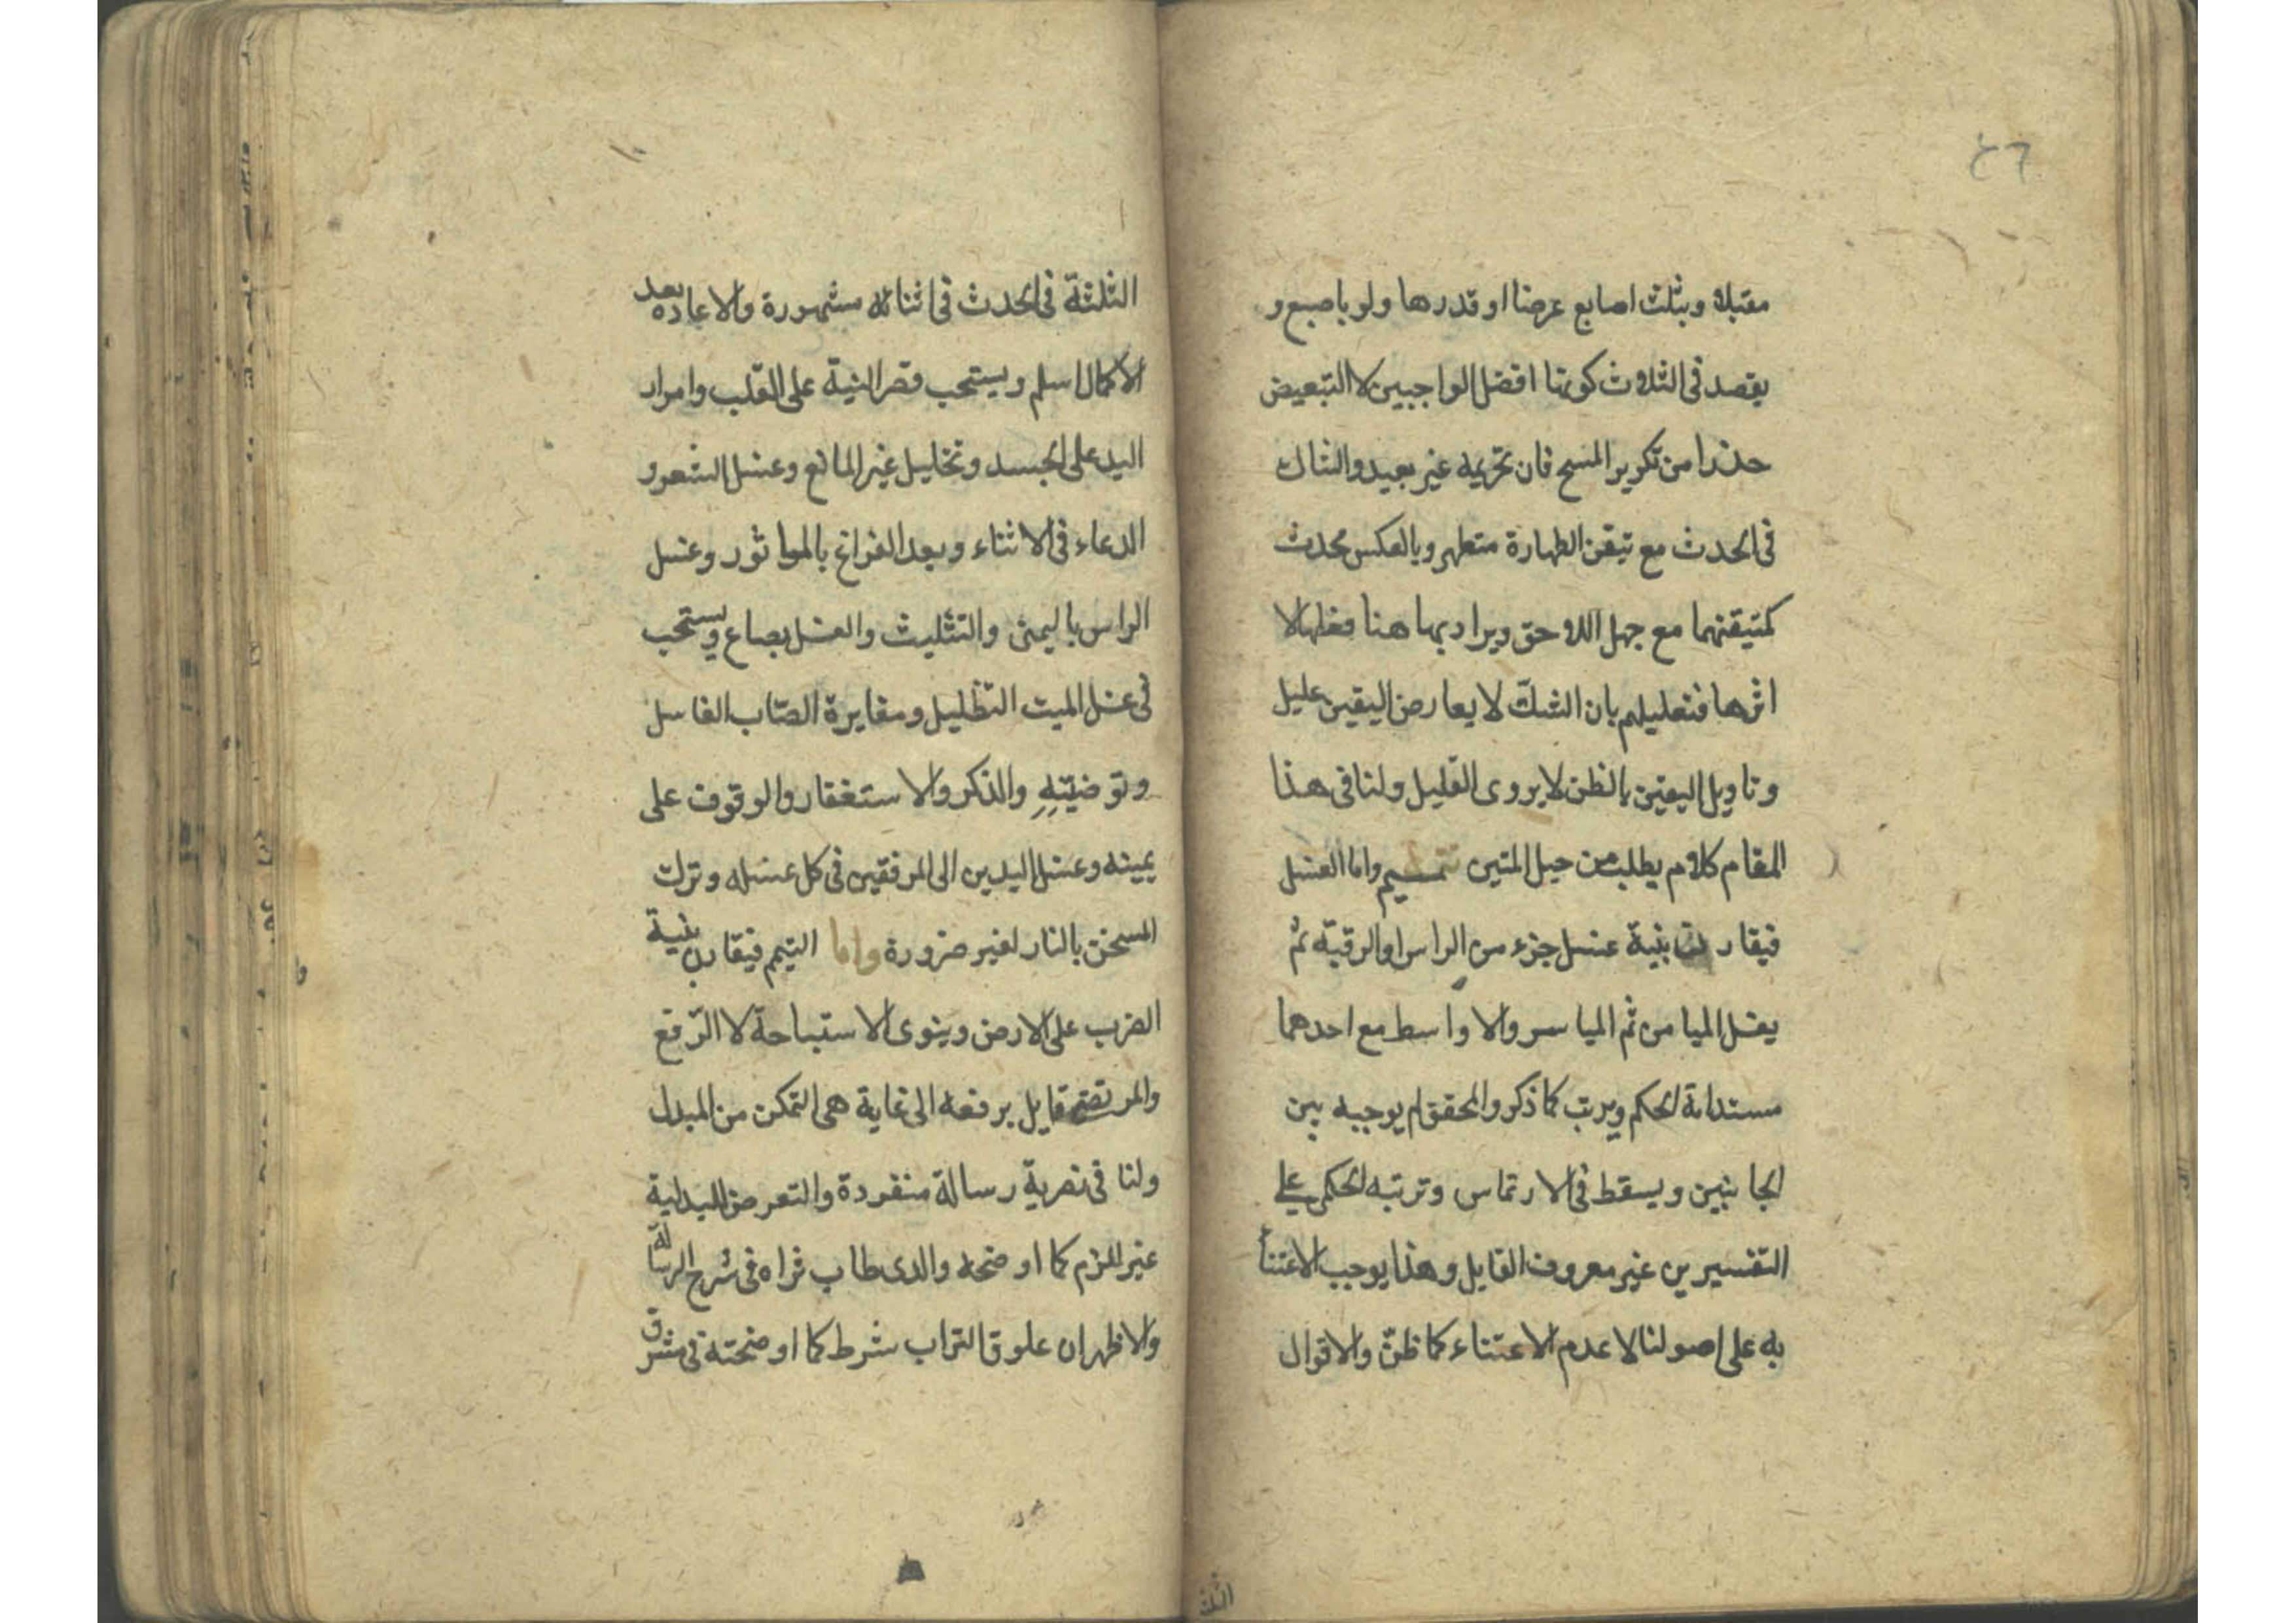 ٤٦
مقبلا وبثلث اصابع عرضا او قدرها ولو باصبع و
يقصد فى الثلاث كونها افضل الواجبين لا التبعيض
حذرا من تكرير المسح فان تحريمه غير بعيد والشاك
فى الحدث مع تيقن الطهارة متطهر وبالعكس محدث
كمتيقنهما مع جهل اللاحق ويراد بها هنا فعلها لا
اثرها فتعليلهم بان الشك لا يعارض اليقين عليل
وتاويل اليقين بالظن لا يروى الغليل ولنا فى هذا
المقام كلام يطلب من حبل المتين تتميم واما الغسل
فيقارن بنية غسل جزء من الراس او الرقبة ثم
يغسل الميامن ثم المياسر والاواسط مع احدهما
مستدامة الحكم ويرتب كما ذكر والمحقق لم يوجبه بين
الجانبين ويسقط فى الارتماس وترتبه الحكمى على
التفسيرين غير معروف القايل وهذا يوجب الاعتنا
به على اصولنا لا عدم الاعتناء كما ظن والاقوال
الثلثة
الثلثة فى الحدث فى اثنائه مشهورة والاعاده بعد
الاكمال اسلم ويستحب قصر النية على القلب وامرار
اليد على الجسد وتخليل غير المانع وغسل الشعر و
الدعاء فى الاثناء وبعد الفراغ بالماثور وغسل
الراس باليمنى والتثليث والغسل بصاع ويستحب
فى غسل الميت التظليل ومغايرة الصاب الغاسل
وتوضيته والذكر والاستغفار والوقوف على
يمينه وغسل اليدين الى المرفقين فى كل غسله وترك
المسخن بالنار لغير ضرورة واما التيمم فيقارن بنية
الضرب على الارض وينوى الاستباحة لا الرفع
والمرتضى قايل برفعه الى غاية هى التمكن من المبدل
ولنا فى رسالة منفردة والتعرض للبدلية
غير لازم كما اوضحه والدى طاب ثراه فى شرح الرسالة
والاظهر ان علوق التراب شرط كما اوضحته فى مشرق